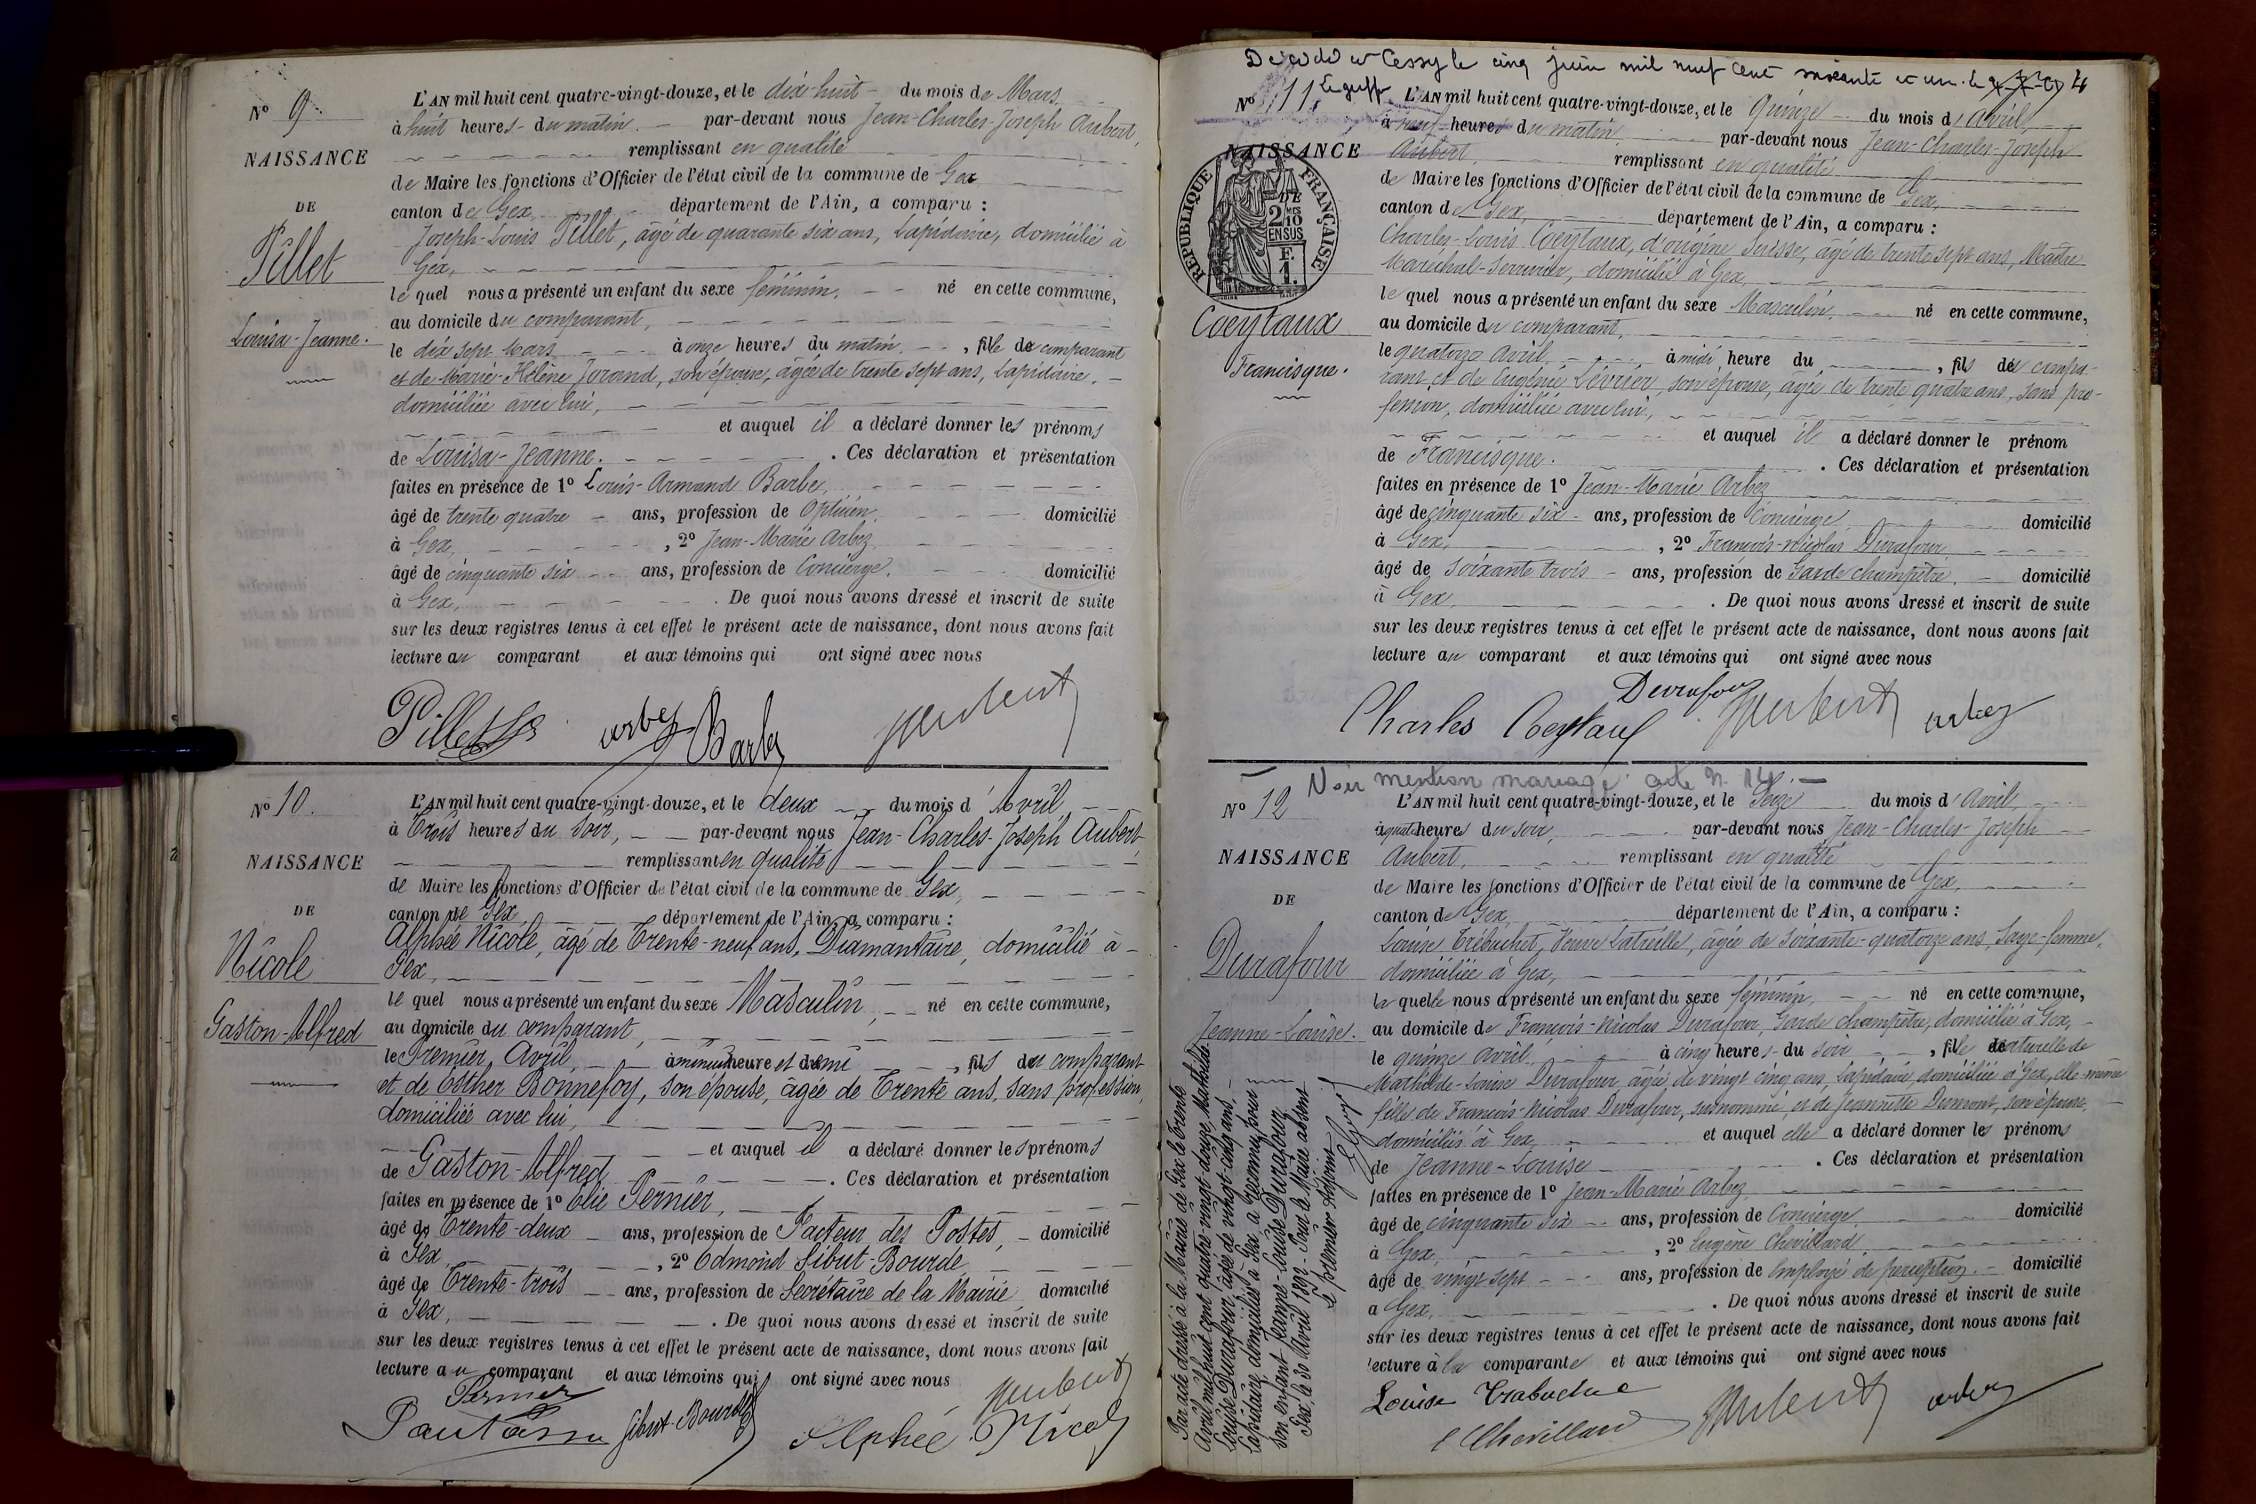 Nº 9
NAISSANCE
DE
Pillet
Louisa-Jeanne.
L'AN mil huit cent quatre-vingt-douze, et le dix-huit du mois de Mars
à huit heures du matin. par-devant nous Jean-Charles-Joseph Aubert,
remplissant en qualité
de Maire les fonctions d'Officier de l'état civil de la commune de Gex
canton de Gex, département de l'Ain, a comparu :
Joseph-Louis Pillet, âgé de quarante six ans, Lapidaire, domicilié à
Gex,
le quel nous a présenté un enfant du sexe féminin, né en cette commune,
au domicile du comparant,
le dix sept Mars à onze heures du matin, fille de comparant
et de Marie-Hélène Jorand, son épouse, âgée de trente sept ans, Lapidaire,
domiciliée avec lui,
et auquel il a déclaré donner les prénoms
de Louisa-Jeanne. . Ces déclaration et présentation
faites en présence de 1º Louis-Armand Barbe,
âgé de trente quatre ans, profession de Opticien, domicilié
à Gex, , 2º Jean-Marie Arbez
âgé de cinquante six ans, profession de Concierge, domicilié
à Gex, . De quoi nous avons dressé et inscrit de suite
sur les deux registres tenus à cet effet le présent acte de naissance, dont nous avons fait
lecture au comparant et aux témoins qui ont signé avec nous
Pillet arbez Barbe Aubert
Nº 10.
NAISSANCE
DE
Nicole
Gaston-Alfred
L'AN mil huit cent quatre-vingt-douze, et le deux du mois d'Avril
à Trois heures du Soir, par-devant nous Jean-Charles-Joseph Aubert
remplissant en qualité
de Maire les fonctions d'Officier de l'état civil de la commune de Gex,
canton de Gex département de l'Ain, a comparu :
Alphée Nicole, âgé de Trente-neuf ans, Diamantaire, domicilié à
Gex,
le quel nous a présenté un enfant du sexe Masculin, né en cette commune,
au domicile du comparant,
le Premier Avril, à minuit heure et demi, fils du comparant
et de Esther Bonnefoy, son épouse, âgée de Trente ans, sans profession,
domiciliée avec lui,
et auquel il a déclaré donner les prénoms
de Gaston-Alfred . Ces déclaration et présentation
faites en présence de 1º Elie Pernier,
âgé de Trente-deux ans, profession de Facteur des Postes, domicilié
à Gex , 2º Edmond Sibut-Bourde
âgé de Trente-trois ans, profession de Secrétaire de la Mairie domicilié
à Gex, . De quoi nous avons dressé et inscrit de suite
sur les deux registres tenus à cet effet le présent acte de naissance, dont nous avons fait
lecture au comparant et aux témoins qui ont signé avec nous
Pernier Aubert
Sibut-Bourde Alphée Nicole
Décédé à Cessy le cinq juin mil neuf cent soixante et un. 4
Le greff
Nº 11
NAISSANCE
DE
RÉPUBLIQUE FRANÇAISE
2 MES 10
EN SUS
F.
1.
Coeytaux
Francisque.
L'AN mil huit cent quatre-vingt-douze, et le Quinze du mois d'Avril,
à neuf heures du matin, par-devant nous Jean-Charles-Joseph
Aubert, remplissant en qualité
de Maire les fonctions d'Officier de l'état civil de la commune de Gex,
canton de Gex, département de l'Ain, a comparu :
Charles-Louis Coeytaux, d'origine Suisse, âgé de trente sept ans, Maître
Maréchal-Serrurier, domicilié à Gex,
le quel nous a présenté un enfant du sexe Masculin, né en cette commune,
au domicile du comparant,
le quatorze avril, à midi, heure du , fils du compa-
rant et de Eugénie Lévrier, son épouse, âgée de trente quatre ans, sans pro-
fession, domiciliée avec lui,
et auquel il a déclaré donner le prénom
de Francisque. . Ces déclaration et présentation
faites en présence de 1º Jean-Marie Arbez
âgé de cinquante six ans, profession de Concierge domicilié
à Gex, , 2º François-Nicolas Durafour
âgé de Soixante trois ans, profession de Garde champêtre, domicilié
à Gex, . De quoi nous avons dressé et inscrit de suite
sur les deux registres tenus à cet effet le présent acte de naissance, dont nous avons fait
lecture au comparant et aux témoins qui ont signé avec nous
Charles Coeytaux Durafour Aubert arbez
Voir mention mariage acte n. 14.
Nº 12
NAISSANCE
DE
Durafour
Jeanne-Louise.
L'AN mil huit cent quatre-vingt-douze, et le Seize du mois d'Avril,
à quatre heures du soir, par-devant nous Jean-Charles-Joseph
Aubert, remplissant en qualité
de Maire les fonctions d'Officier de l'état civil de la commune de Gex,
canton de Gex département de l'Ain, a comparu :
Louise Trébuchet, Veuve Latreille, âgée de soixante-quatorze ans Sage-femme,
domiciliée à Gex,
la quelle nous a présenté un enfant du sexe féminin, né en cette commune,
au domicile de François-Nicolas Durafour, Garde champêtre, domicilié à Gex,
le quinze avril à cinq heures du soir, fille naturelle de
Mathilde-Louise Durafour âgée de vingt cinq ans, Lapidaire, domiciliée à Gex, elle-même
fille de François-Nicolas Durafour, susnommé, et de Jeannette Dumont, son épouse,
domiciliés à Gex, et auquel elle a déclaré donner les prénoms
de Jeanne-Louise . Ces déclaration et présentation
faites en présence de 1º Jean-Marie Arbez
âgé de cinquante six ans, profession de Concierge domicilié
à Gex, , 2º Eugène Chevillard
âgé de vingt-sept ans, profession de Employé de perception domicilié
à Gex, . De quoi nous avons dressé et inscrit de suite
sur les deux registres tenus à cet effet le présent acte de naissance, dont nous avons fait
lecture à la comparante et aux témoins qui ont signé avec nous
Louise Trabuchue Aubert arbez
E Chevillard
Par acte dressé à la Mairie de Gex le trente
Avril mil huit cent quatre-vingt-douze, Mathilde-
Louise Durafour, âgée de vingt-cinq ans,
Lapidaire, domiciliée à Gex, a reconnu pour
son enfant Jeanne-Louise Durafour.
Gex, le 30 Avril 1892. Pour le Maire absent
Le premier Adjoint